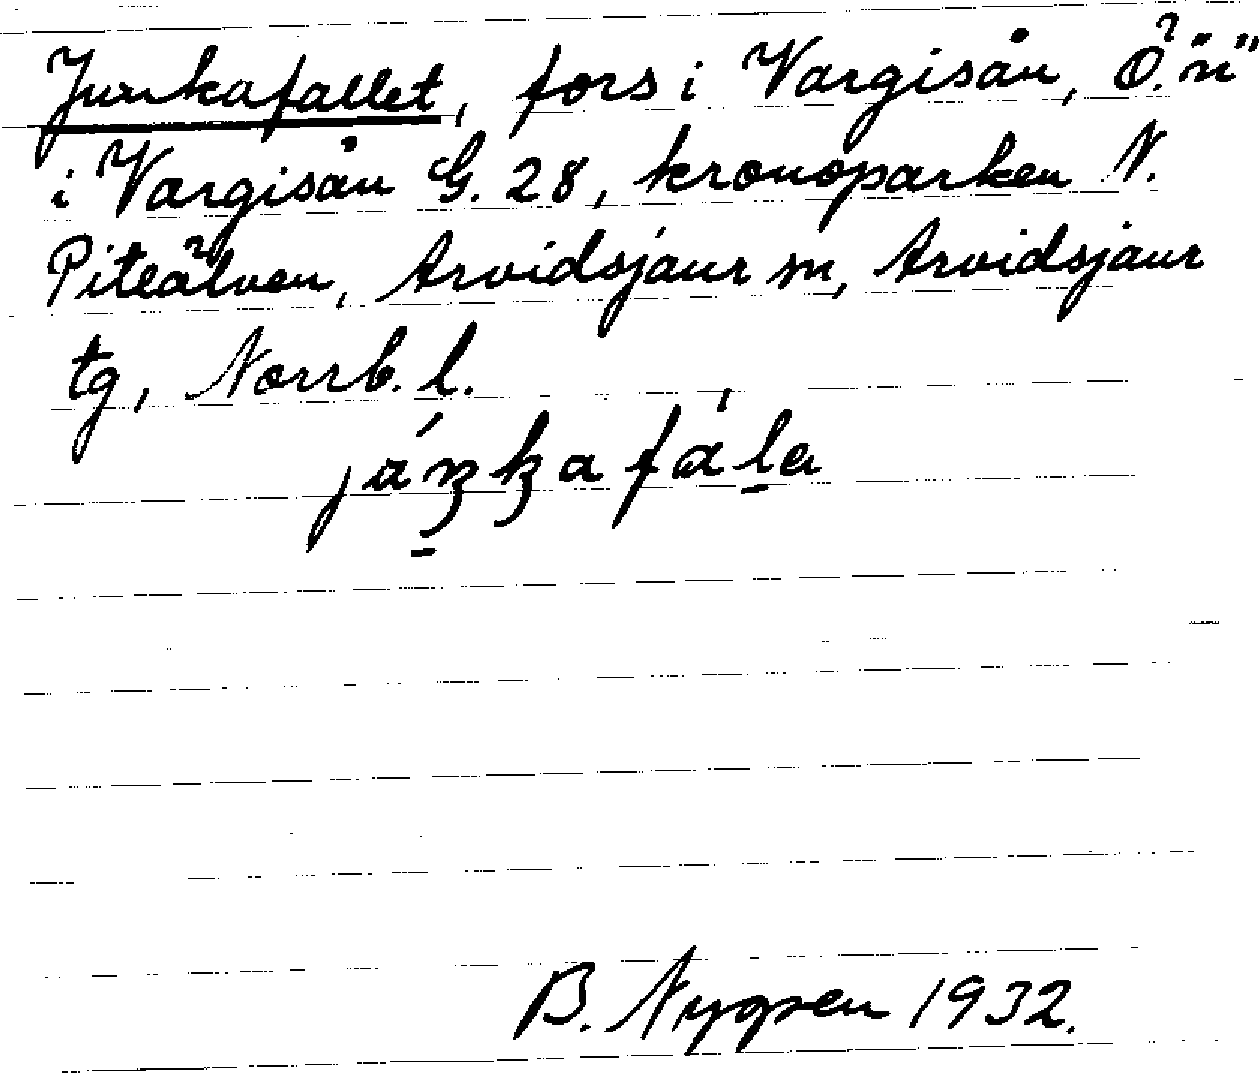 Junkafallet, fors i Vargisån, Ö. "n"
i Vargisån G. 28, kronoparken N.
Piteälven, Arvidsjaur sn, Arvidsjaur
tg, Norrb. l.
B. Nygren 1932.